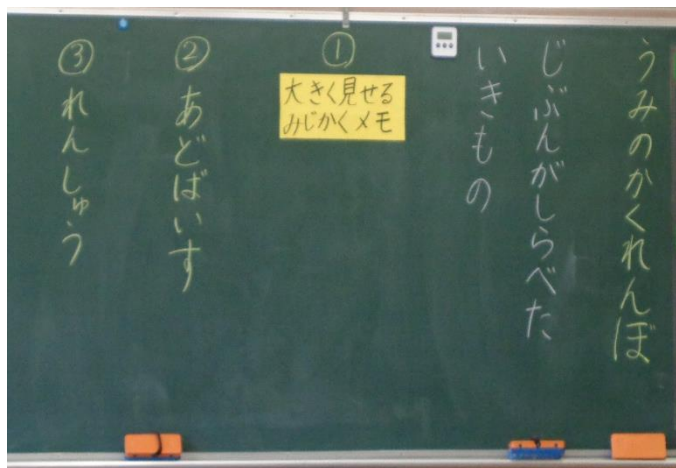 うみのかくれんぼ
じぶんがしらべた
いきもの
①
大きく見せる
みじかくメモ
②あどばいす
③れんしゅう